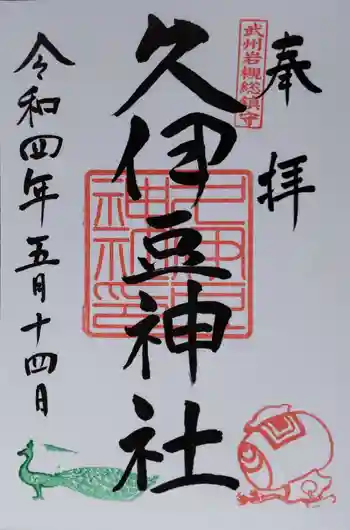 奉拝
武州岩槻総鎮守
久伊豆神社
令和四年五月十四日